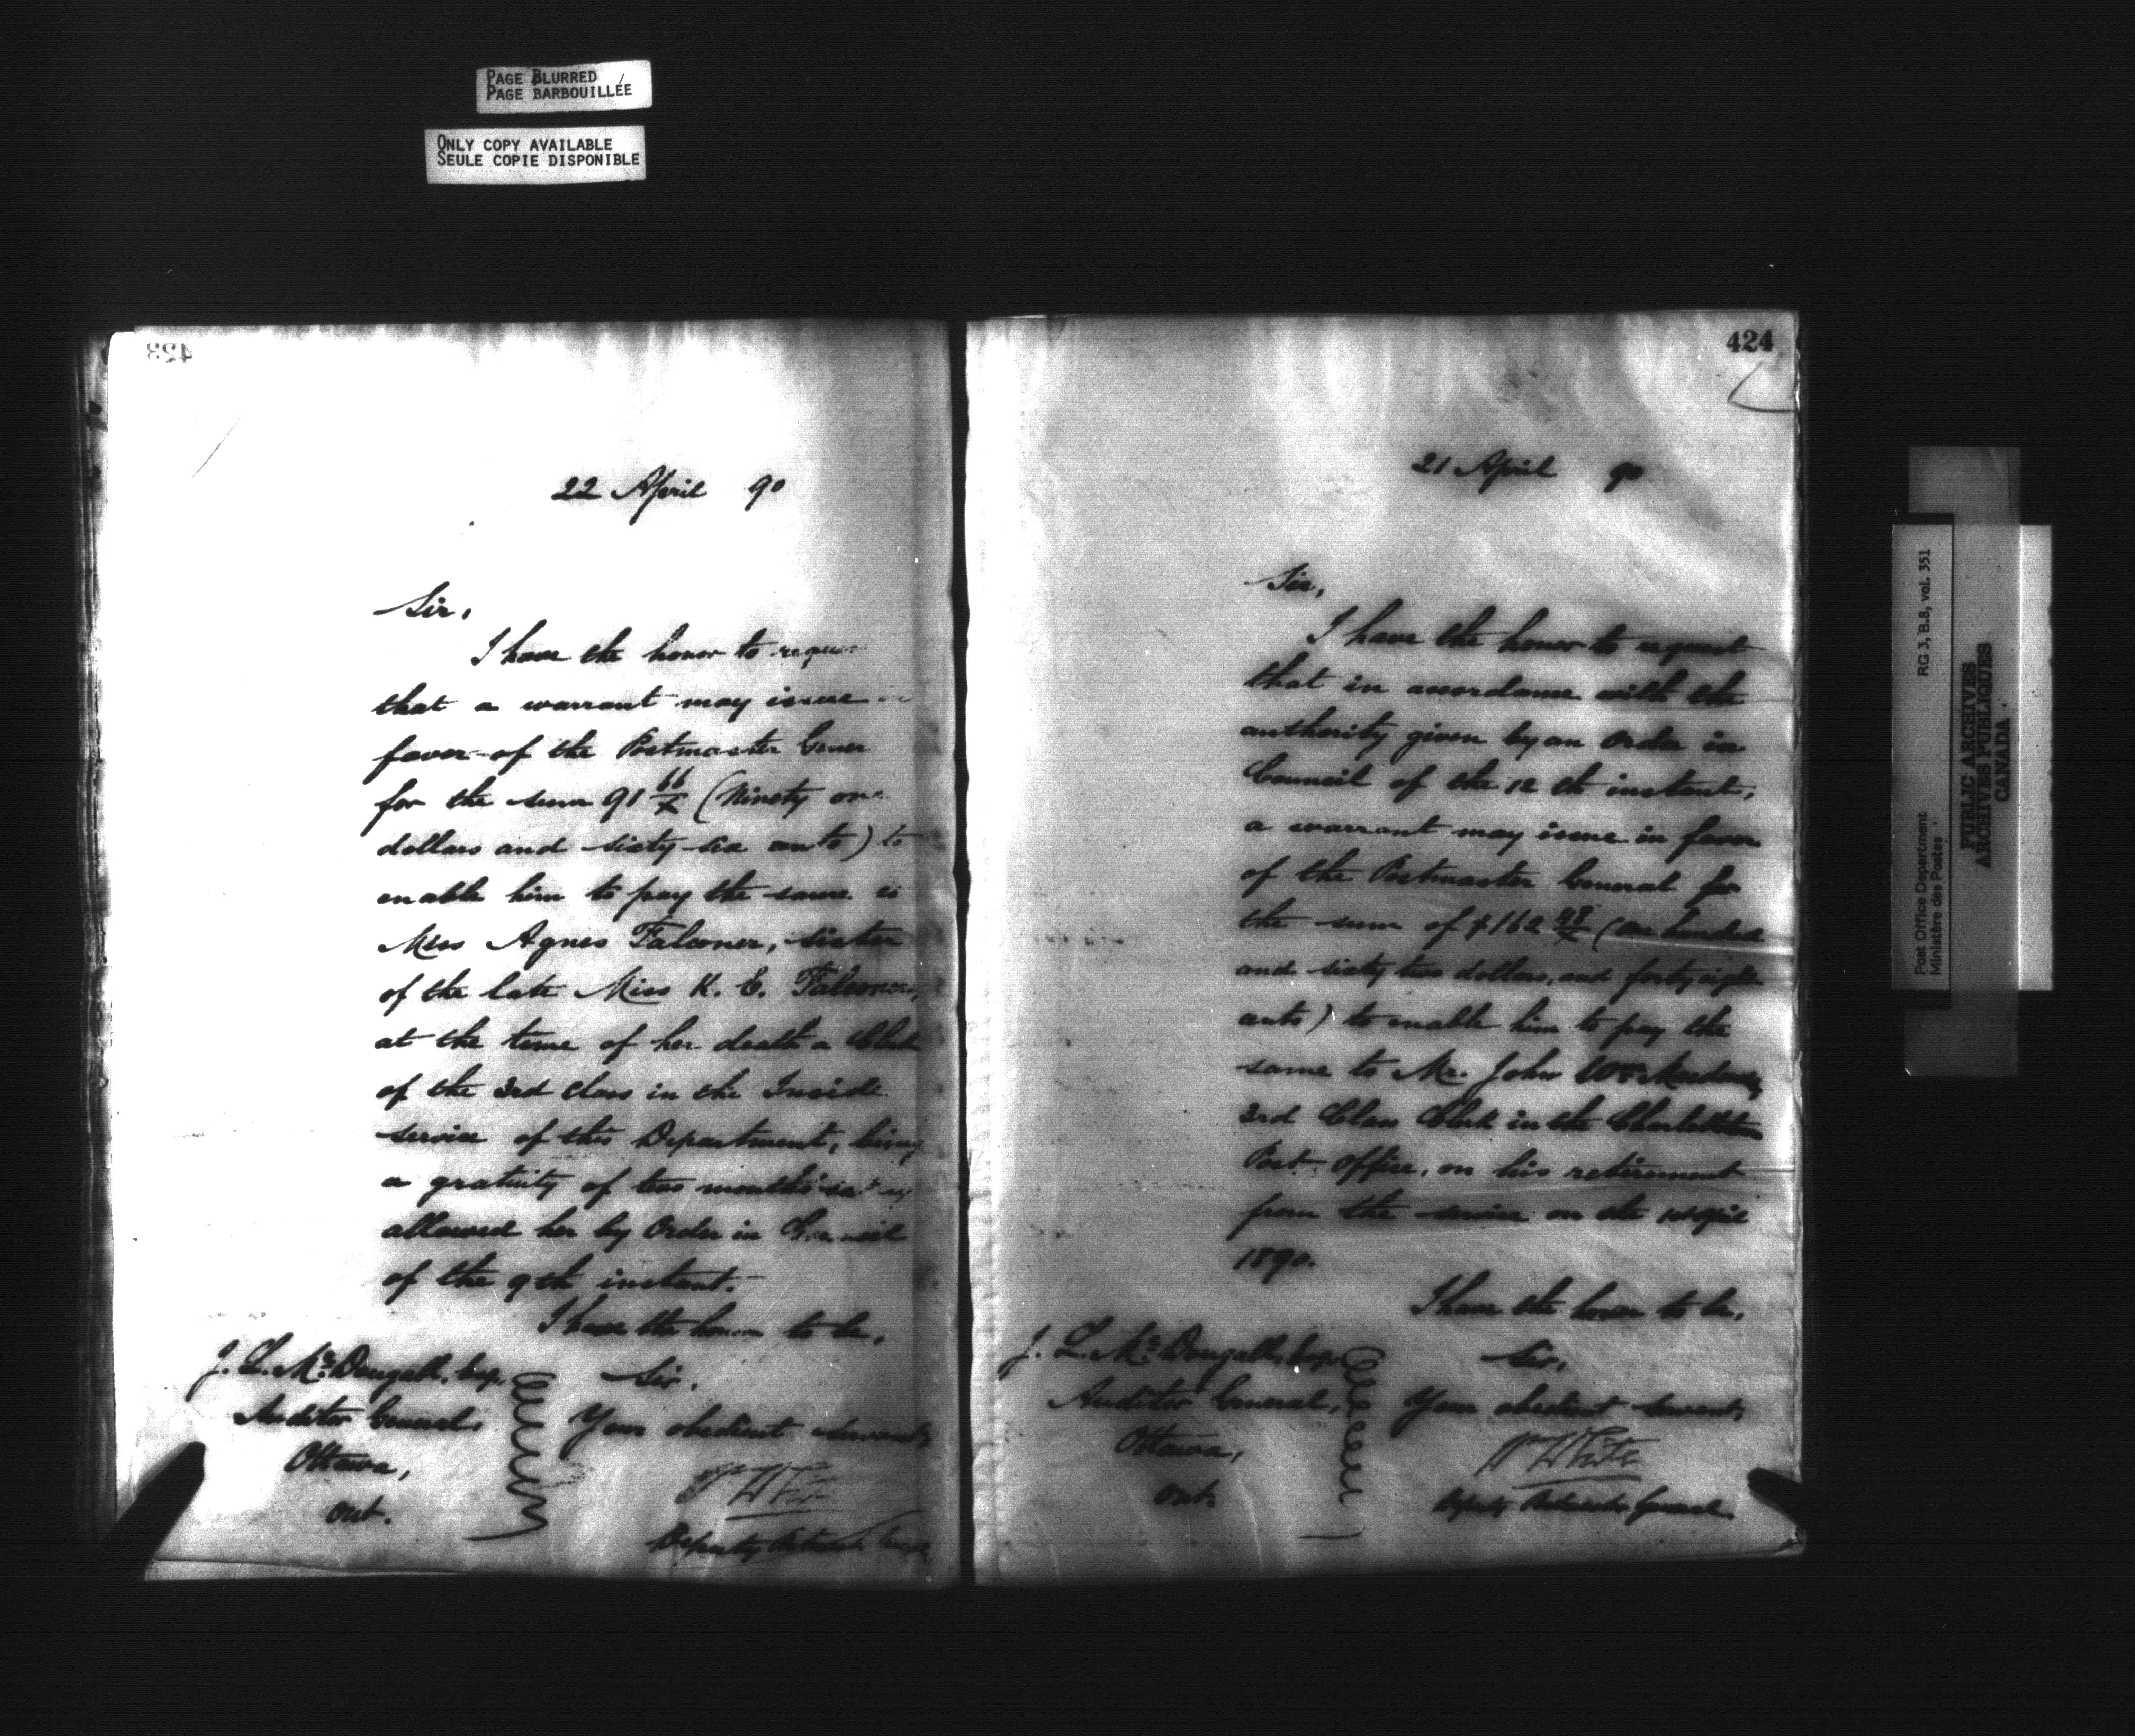 PAGE BLURRED
PAGE BARBOUILLÉE
ONLY COPY AVAILABLE
SEULE COPIE DISPONIBLE
423
22 April 90
Sir,
I have the honor to reques
that a warrant may issue in
favor of the Postmaster Gener
for the sum 91 66/x (Ninety one
dollars and sixty six cents) to
enable him to pay the same to
Miss Agnes Falconer, sister
of the late Miss K. E. Falconer,
at the time of her death a Clerk
of the 3rd class in the Inside
service of this Department, being
a gratuity of two months' salary
allowed her by Order in Council
of the 9th instant.
I have the honor to be,
Sir,
Your obedient servant,
W White
Deputy Postmaster General
J. L. McDougall, Esq,
Auditor General,
Ottawa,
Ont.
424
21 April 90
Sir,
I have the honor to request
that in accordance with the
authority given by an Order in
Council of the 12th instant,
a warrant may issue in favor
of the Postmaster General for
the sum of $162 48/x (One hundred
and sixty two dollars, and forty eight
cents) to enable him to pay the
same to Mr. John Wm
3rd Class Clerk in the Charlottetown
Post Office, on his retirement
from the service on the 1st April
1890.
I have the honor to be,
Sir,
Your obedient servant,
W White
Deputy Postmaster General.
J. L. McDougall, Esq,
Auditor General,
Ottawa,
Ont.
Post Office Department RG 3, B.8, vol. 351
Ministère des Postes
PUBLIC ARCHIVES
ARCHIVES PUBLIQUES
CANADA